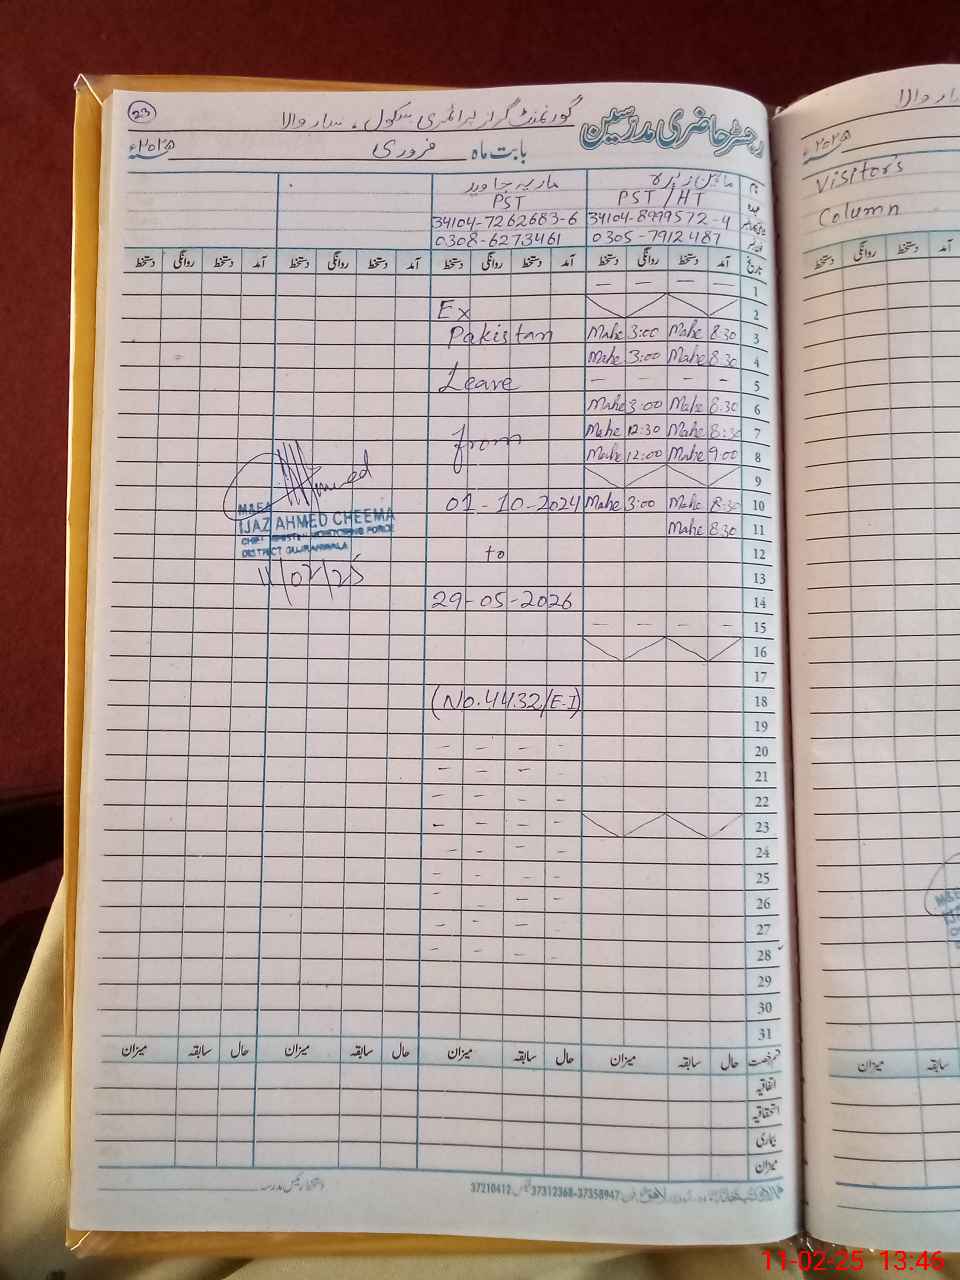 23
رجسٹر حاضری مدرسین
گورنمنٹ گرلز پرائمری سکول ۔
بابت ماہ فروری ۲۰۲۵ء
نام
ماریہ جاوید
PST / HT PST
34104-8999572-4 34104-7262683-6
0305-7912487 0308-6273461
تاریخ آمد دستخط روانگی دستخط آمد دستخط روانگی دستخط آمد دستخط روانگی دستخط آمد دستخط روانگی دستخط
1 — — — —
2
Ex
3 8:30 Mahe 3:00 Mahe
Pakistan
4 8:30 Mahe 3:00 Mahe
5 — — — —
Leave
6 8:30 Mahe 3:00 Mahe
7 8:30 Mahe 12:30 Mahe
from
8 9:00 Mahe 12:00 Mahe
9
10 8:30 Mahe 3:00 Mahe
01-10-2024
11 8:30 Mahe
12
to
13
14
29-05-2026
15 — — — —
16
17
18
(No.4432/E-I)
19
20 - - - -
21 - - - -
22 - - - -
23 - - - -
24 - - - -
25 - - - -
26 - - - -
27 - - - -
28 - - - -
29
30
31
Ahmed
M&EA
IJAZ AHMED CHEEMA
CHIEF MINISTER MONITORING FORCE
DISTRICT GUJRANWALA
11/02/25
قسم رخصت حال سابقہ میزان حال سابقہ میزان حال سابقہ میزان حال سابقہ میزان
اتفاقیہ
استحقاقیہ
بیماری
میزان
37312368-37358947
37210412
۲۰۲۵ء
Visitor's
Column
دستخط روانگی دستخط آمد
M&EA
میزان سابقہ
11-02-25 13:46